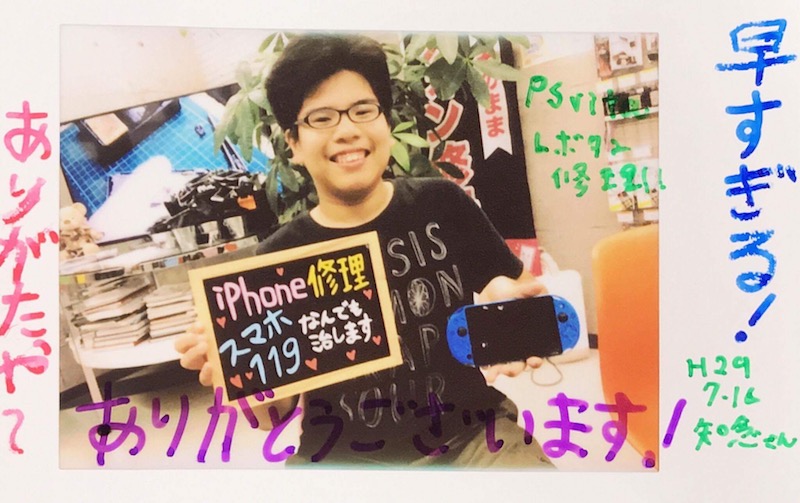 ありがたやて
早すぎる!
PSvita
Lボタン
修理!!
iPhone修理
スマホ
119
なんでも
治します
SIS
MON
AP
SOUR
ありがとうございます!
H29
7-16